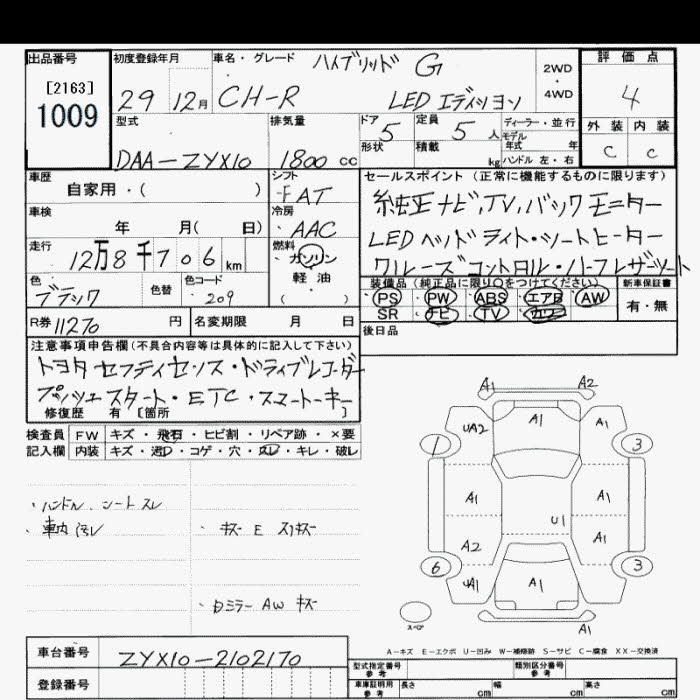 出品番号 初度登録年月 車名・グレード ハイブリッド G 2WD・4WD 評価点
[2163]
1009 29 12月 CH-R LED エディション 4
外装 内装
C C
型式 排気量 ドア 5 定員 5人 ディーラー・並行
モデル年式 年
DAA-ZYX10 1800cc 形状 積載 kg ハンドル 左・右
車歴 シフト セールスポイント(正常に機能するものに限ります)
自家用・( ) F AT 純正ナビ,TV,バックモニター
車検 冷房
年 月( 日) AAC LEDヘッドライト・シートヒーター
走行 燃料
12万8千706km ガソリン・軽油( ) クルーズコントロール・ハーフレザーシート
色 色替 色コード 装備品(純正品に限り○をつけてください) 新車保証書
ブラック 209 PS PW ABS エアB AW 有・無
SR ナビ TV カワ
R券 11270円 名変期限 月 日 後日品
注意事項申告欄(不具合内容等は具体的に記入して下さい)
トヨタ セフティセンス・ドライブレコーダー
プッシュスタート・ETC・スマートキー
修復歴 有 [箇所 ]
検査員 FW キズ・飛石・ヒビ割・リペア跡・×要
記入欄 内装 キズ・・コゲ・穴・スレ・キレ・破レ
・ハンドル、シートスレ
・車内汚レ ・キズ E スリキズ
・Dミラー AW キズ
A1 A2
UA2 A1 A1
1 3
A1 A1
U1
A2 A1
6 3
UA1 A1 A1
スペア A1
A-キズ E-エクボ U-凹み W-補修跡 S-サビ C-腐食 XX-交換済
車台番号 ZYX10-2102170
型式指定番号 参考 類別区分番号 参考
登録番号 車庫証明用 参考 長さ cm 幅 cm 高さ cm